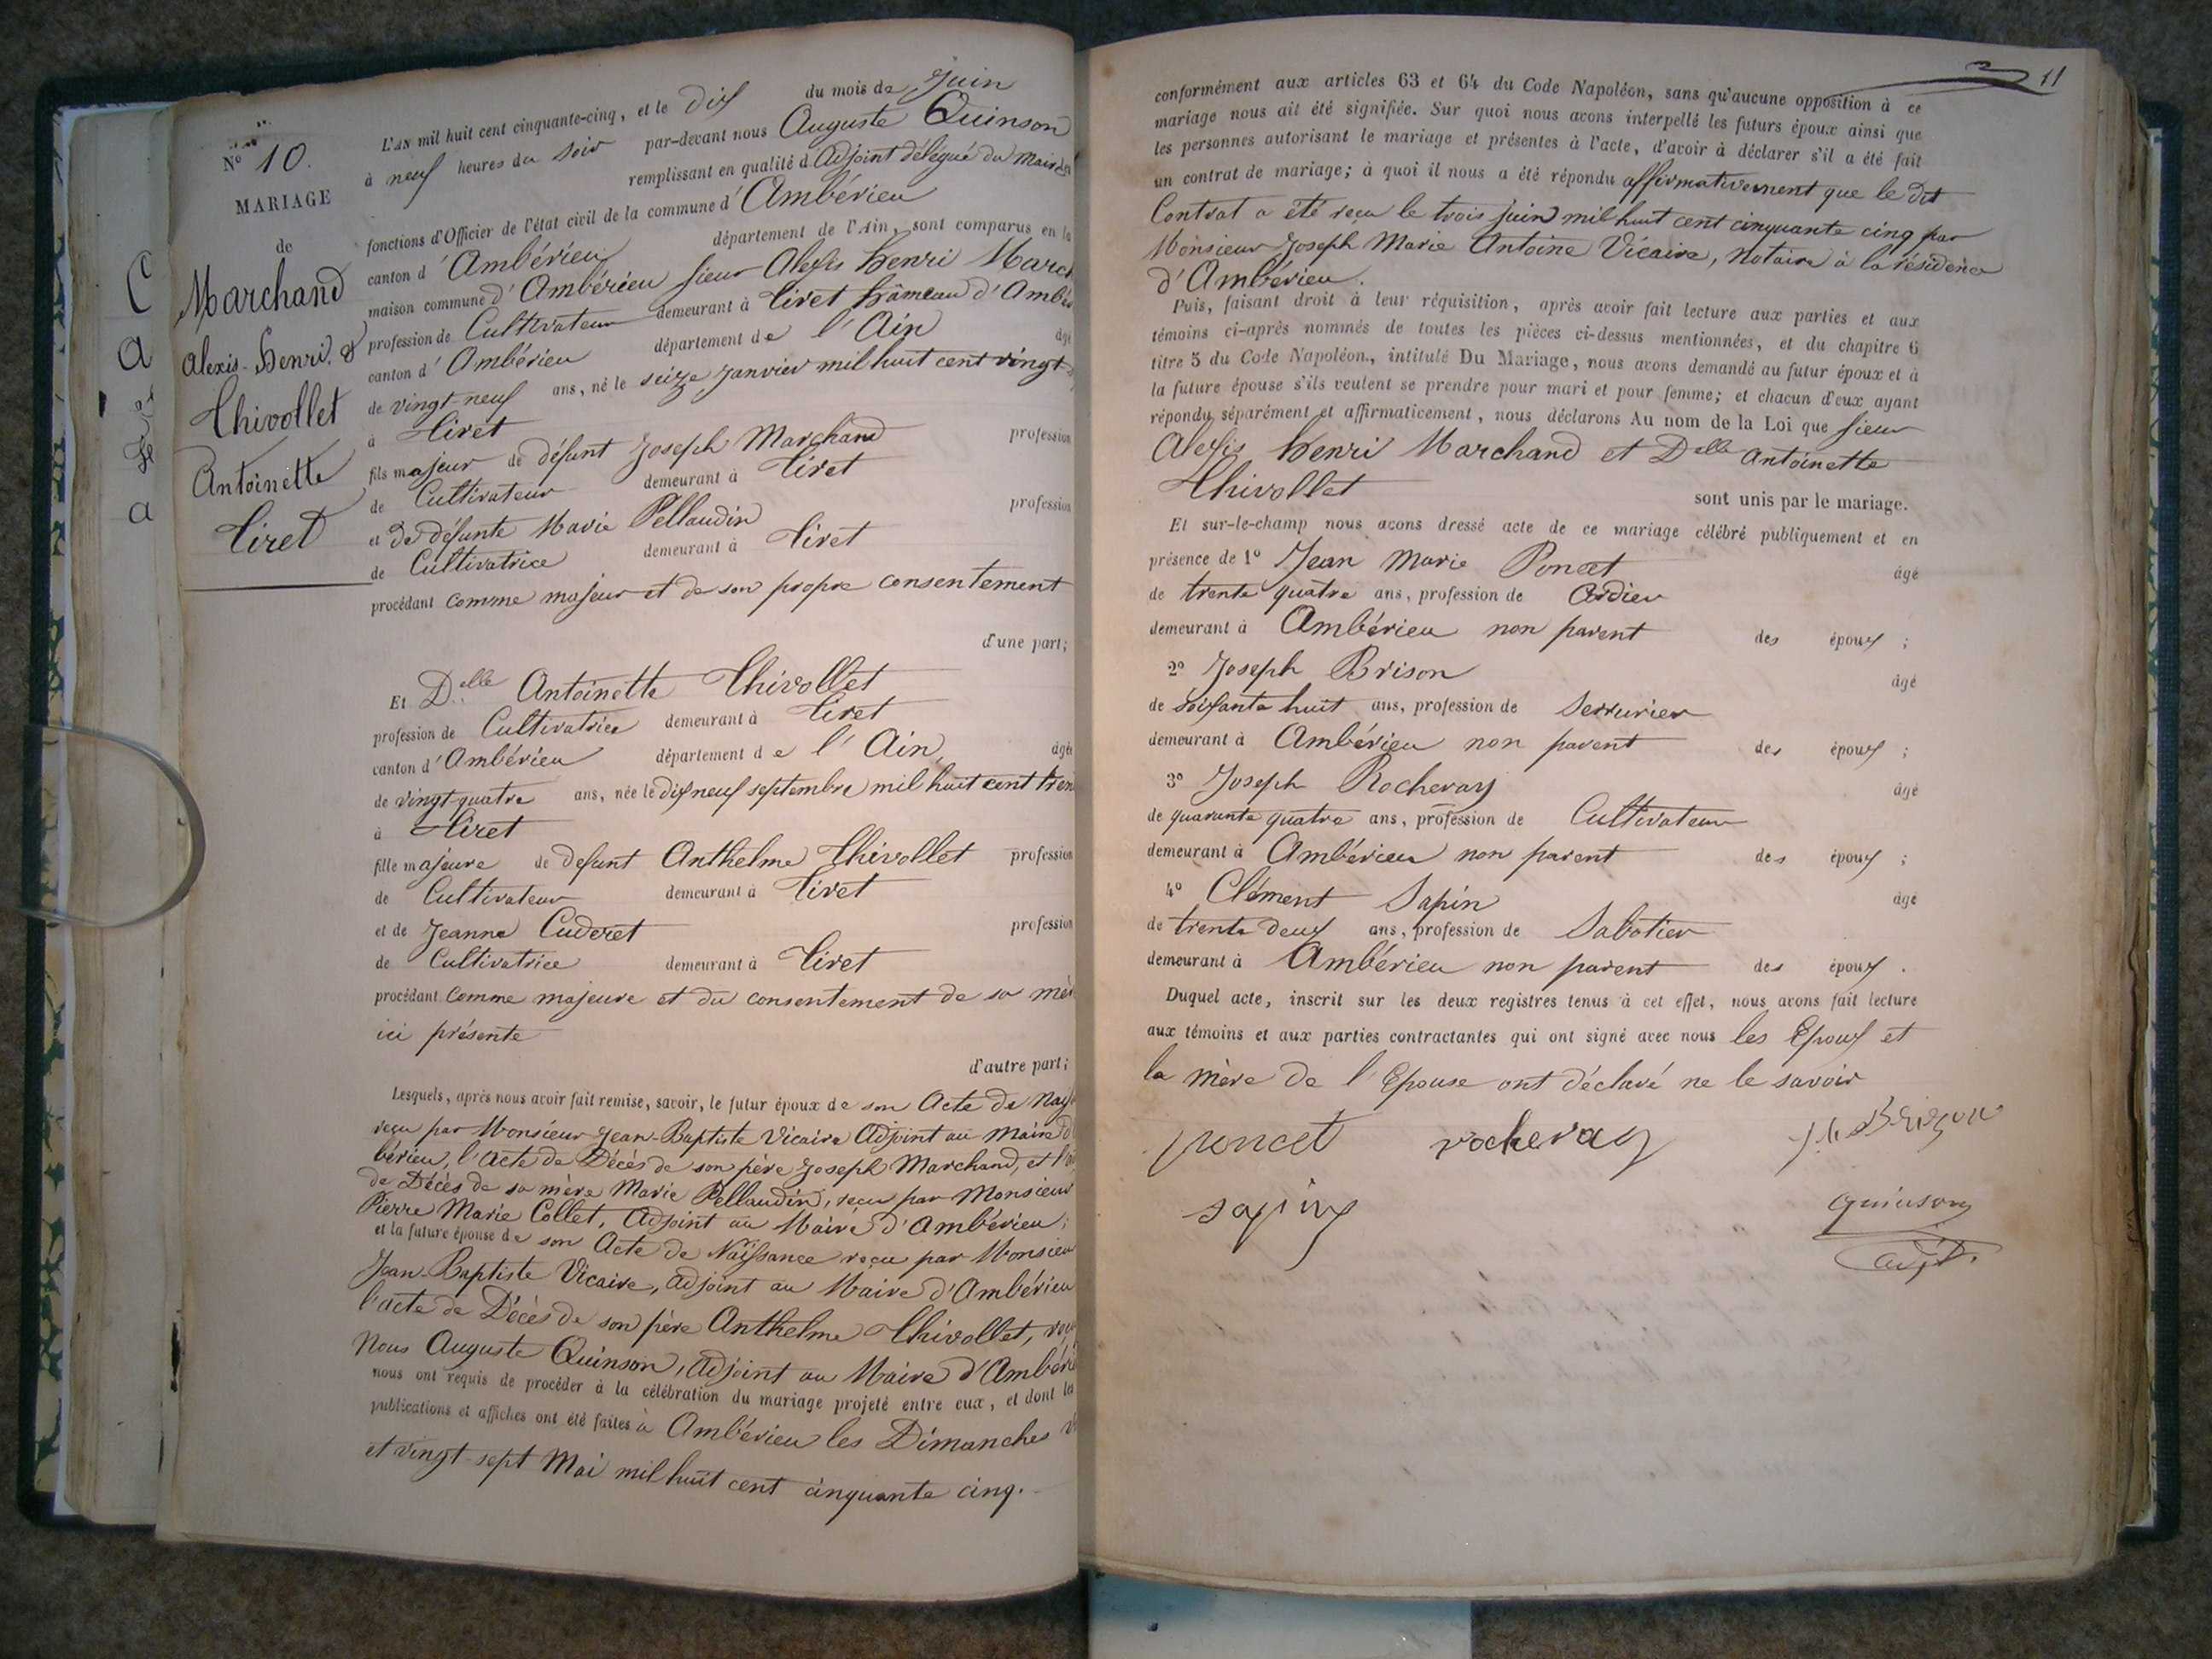 N° 10.
MARIAGE
de
Marchand
Alexis-henri. &
Thivollet
Antoinette
Tiret
L'AN mil huit cent cinquante-cinq, et le dix du mois de Juin
à neuf heures du soir par-devant nous Auguste Quinson
remplissant en qualité d'Adjoint délégué du Maire les
fonctions d'Officier de l'état civil de la commune d'Ambérieu
canton d'Ambérieu département de l'Ain, sont comparus en la
maison commune d'Ambérieu sieur Alexis henri March
profession de Cultivateur demeurant à Tiret hâmeau d'Ambér
canton d'Ambérieu département de l'Ain âgé
de vingt-neuf ans, né le seize Janvier mil huit cent vingt
à Tiret
fils majeur de défunt Joseph Marchand profession
de Cultivateur demeurant à Tiret
et de défunte Marie Pellaudin profession
de Cultivatrice demeurant à Tiret
procédant comme majeur et de son propre consentement
d'une part;
Et Delle Antoinette Thivollet
profession de Cultivatrice demeurant à Tiret
canton d'Ambérieu département de l'Ain, âgée
de vingt-quatre ans, née le dix neuf septembre mil huit cent tren
à Tiret
fille majeure de défunt Anthelme Thivollet profession
de Cultivateur demeurant à Tiret
et de Jeanne Cuderet profession
de Cultivatrice demeurant à Tiret
procédant comme majeure et du consentement de sa mèr
ici présente
d'autre part;
Lesquels, après nous avoir fait remise, savoir, le futur époux de son Acte de Naiss
reçu par Monsieur Jean-Baptiste Vicaire Adjoint au Maire d
bérieu, l'acte de Décès de son père Joseph Marchand, et l'a
de Décès de sa mère Marie Pellaudin, reçu par Monsieur
Pierre Marie Collet, Adjoint au Maire d'Ambérieu;
et la future épouse de son Acte de Naissance reçu par Monsieur
Jean-Baptiste Vicaire, adjoint au Maire d'Ambérieu
l'acte de Décès de son père Anthelme Thivollet, reçu
Nous Auguste Quinson, adjoint au Maire d'Ambérie
nous ont requis de procéder à la célébration du mariage projeté entre eux, et dont les
publications et affiches ont été faites à Ambérieu les Dimanches
et vingt-sept Mai mil huit cent cinquante cinq.
11
conformément aux articles 63 et 64 du Code Napoléon, sans qu'aucune opposition à ce
mariage nous ait été signifiée. Sur quoi nous avons interpellé les futurs époux ainsi que
les personnes autorisant le mariage et présentes à l'acte, d'avoir à déclarer s'il a été fait
un contrat de mariage; à quoi il nous a été répondu affirmativement que le dit
Contrat a été reçu le trois juin mil huit cent cinquante cinq par
Monsieur Joseph Marie Antoine Vicaire, Notaire à la résidence
d'Ambérieu.
Puis, faisant droit à leur réquisition, après avoir fait lecture aux parties et aux
témoins ci-après nommés de toutes les pièces ci-dessus mentionnées, et du chapitre 6
titre 5 du Code Napoléon, intitulé Du Mariage, nous avons demandé au futur époux et à
la future épouse s'ils veulent se prendre pour mari et pour femme; et chacun d'eux ayant
répondu séparément et affirmaticement, nous déclarons Au nom de la Loi que sieur
Alexis henri Marchand et Delle Antoinette
Thivollet sont unis par le mariage.
Et sur-le-champ nous avons dressé acte de ce mariage célébré publiquement et en
présence de 1° Jean Marie Poncet âgé
de trente quatre ans, profession de Cordier
demeurant à Ambérieu non parent des époux ;
2° Joseph Brison âgé
de soixante huit ans, profession de Serrurier
demeurant à Ambérieu non parent des époux ;
3° Joseph Rochevay âgé
de quarante quatre ans, profession de Cultivateur
demeurant à Ambérieu non parent des époux ;
4° Clément Sapin âgé
de trente deux ans, profession de Sabotier
demeurant à Ambérieu non parent des époux.
Duquel acte, inscrit sur les deux registres tenus à cet effet, nous avons fait lecture
aux témoins et aux parties contractantes qui ont signé avec nous les Epoux et
la mère de l'Epouse ont déclaré ne le savoir
poncet rochevay Brizon
sapin quinson
adjt.